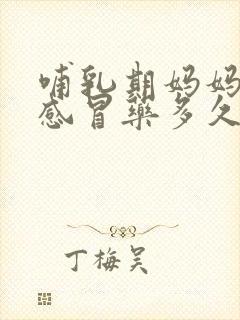 哺乳期妈妈
感冒药多久
丁梅吴